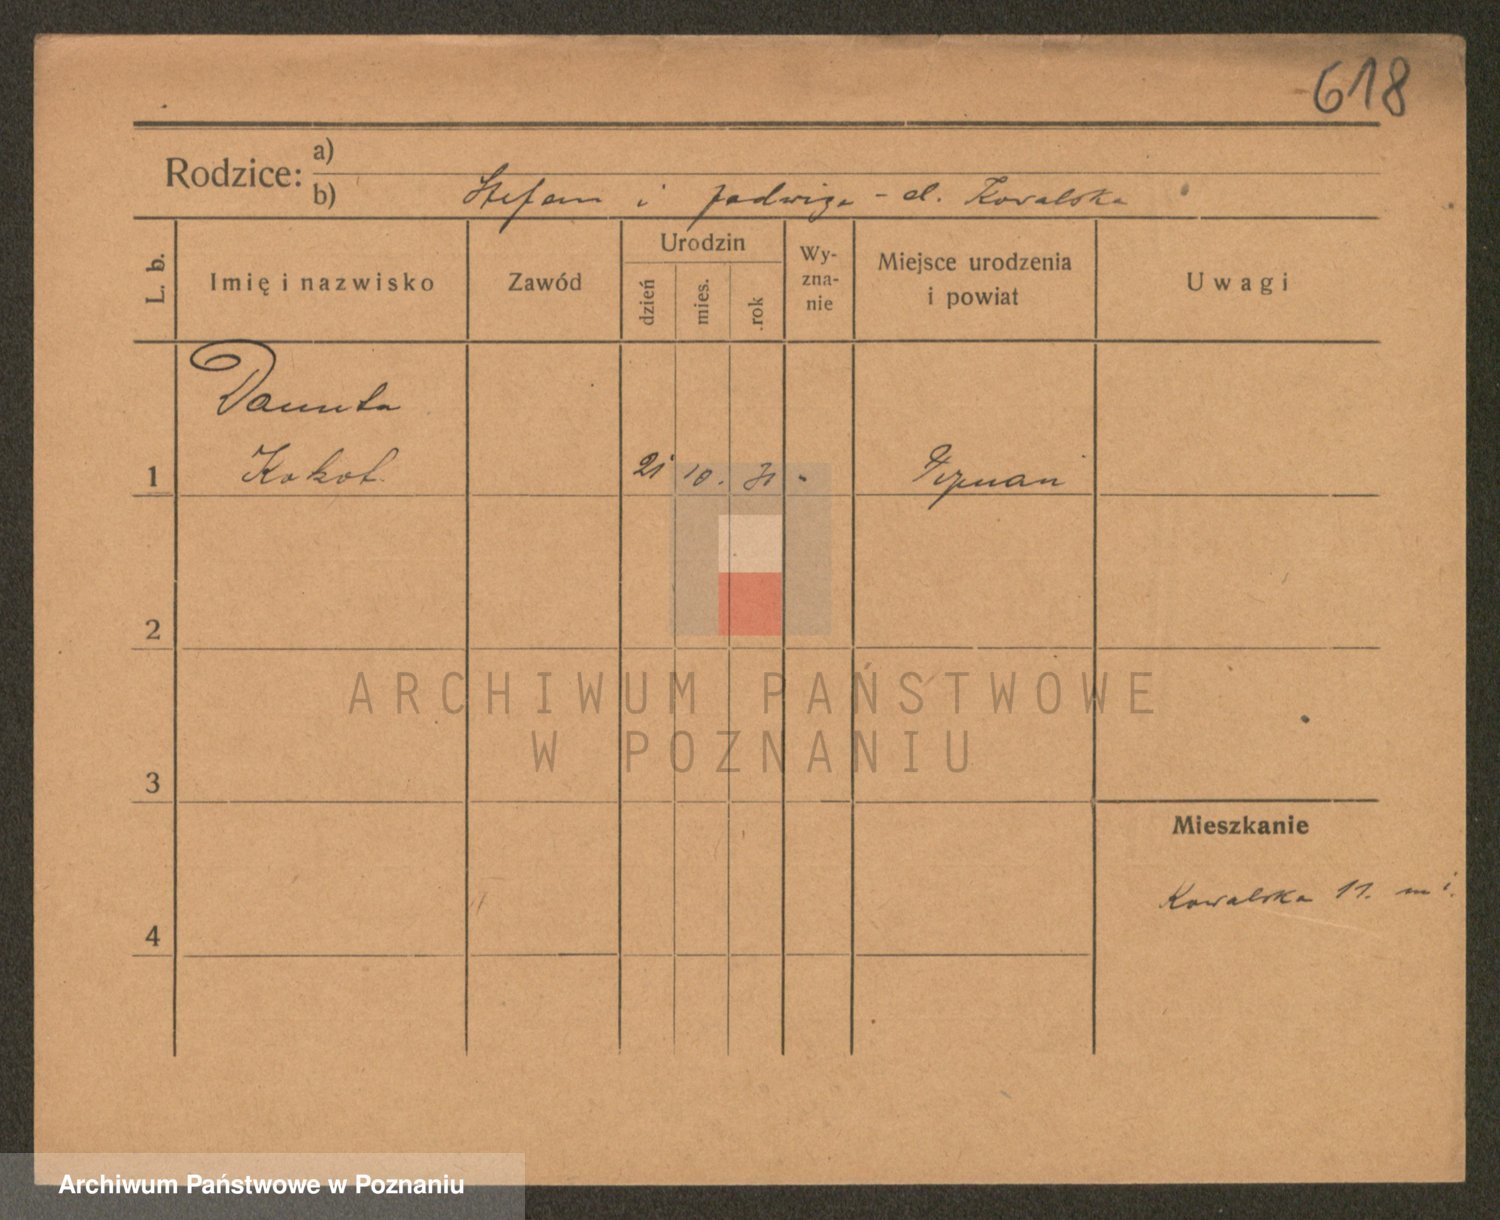 618
Rodzice:
a)
b) Stefan i Jadwiga - ul. Kowalska
L. b.
Imię i nazwisko
Zawód
Urodzin
dzień
mies.
rok
Wy-
zna-
nie
Miejsce urodzenia
i powiat
Uwagi
Danuta
1 Kokot 21 10. 31 - Poznań
2
3
4
Mieszkanie
Kowalska 11. m
ARCHIWUM PAŃSTWOWE
W POZNANIU
Archiwum Państwowe w Poznaniu